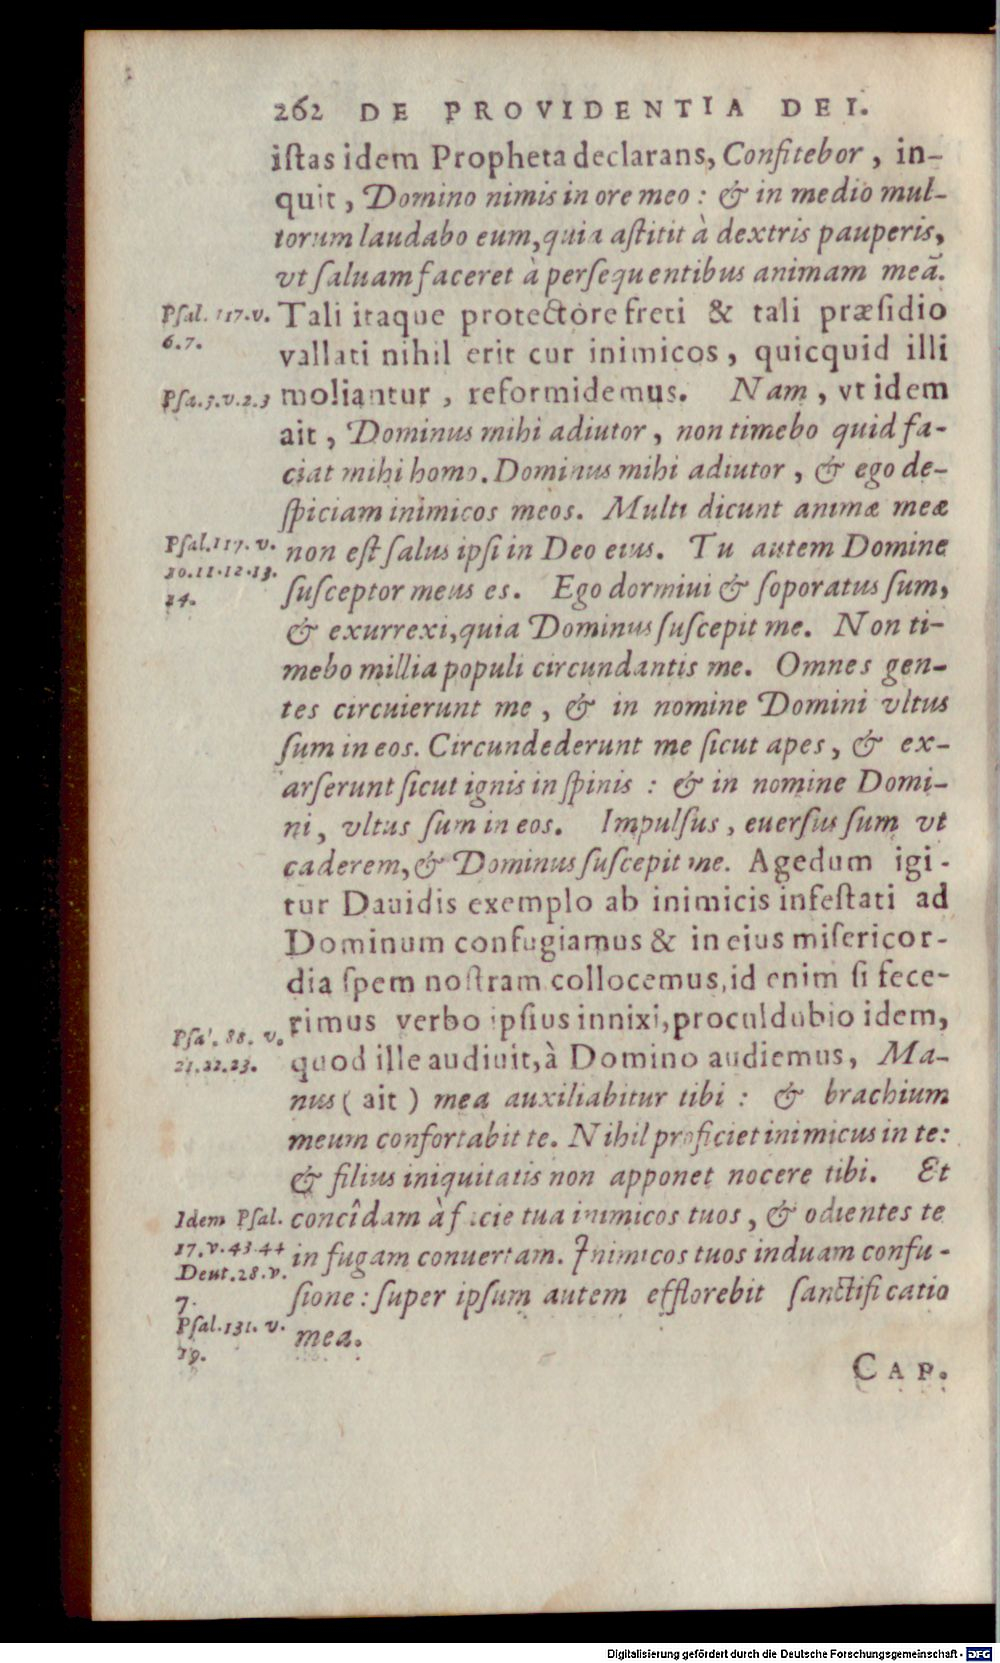 262 DE PROVIDENTIA DEI.
istas idem Propheta declarans, Confitebor, in-
quit, Domino nimis in ore meo: & in medio mul-
torum laudabo eum, quia astitit à dextris pauperis,
vt saluam faceret à persequentibus animam meã.
Psal. 117. v.
6. 7.
Tali itaque protectore freti & tali præsidio
vallati nihil erit cur inimicos, quicquid illi
Psa. 3. v. 2. 3
moliantur, reformidemus. Nam, vt idem
ait, Dominus mihi adiutor, non timebo quid fa-
ciat mihi homo. Dominus mihi adiutor, & ego de-
spiciam inimicos meos. Multi dicunt animæ meæ
Psal. 117. v.
10. 11. 12. 13.
14.
non est salus ipsi in Deo eius. Tu autem Domine
susceptor meus es. Ego dormiui & soporatus sum,
& exurrexi, quia Dominus suscepit me. Non ti-
mebo millia populi circundantis me. Omnes gen-
tes circuierunt me, & in nomine Domini vltus
sum in eos. Circundederunt me sicut apes, & ex-
arserunt sicut ignis in spinis: & in nomine Domi-
ni, vltus sum in eos. Impulsus, euersus sum vt
caderem, & Dominus suscepit me. Agedum igi-
tur Dauidis exemplo ab inimicis infestati ad
Dominum confugiamus & in eius misericor-
dia spem nostram collocemus, id enim si fece-
rimus verbo ipsius innixi, proculdubio idem,
Psal. 88. v.
21. 22. 23.
quod ille audiuit, à Domino audiemus, Ma-
nus (ait) mea auxiliabitur tibi: & brachium
meum confortabit te. Nihil proficiet inimicus in te:
& filius iniquitatis non apponet nocere tibi. Et
Idem Psal.
17. v. 43. 44
Deut. 28. v.
7.
Psal. 131. v.
19.
concîdam à facie tua inimicos tuos, & odientes te
in fugam conuertam. Inimicos tuos induam confu-
sione: super ipsum autem efflorebit sanctificatio
mea.
CAP.
Digitalisierung gefördert durch die Deutsche Forschungsgemeinschaft - DFG